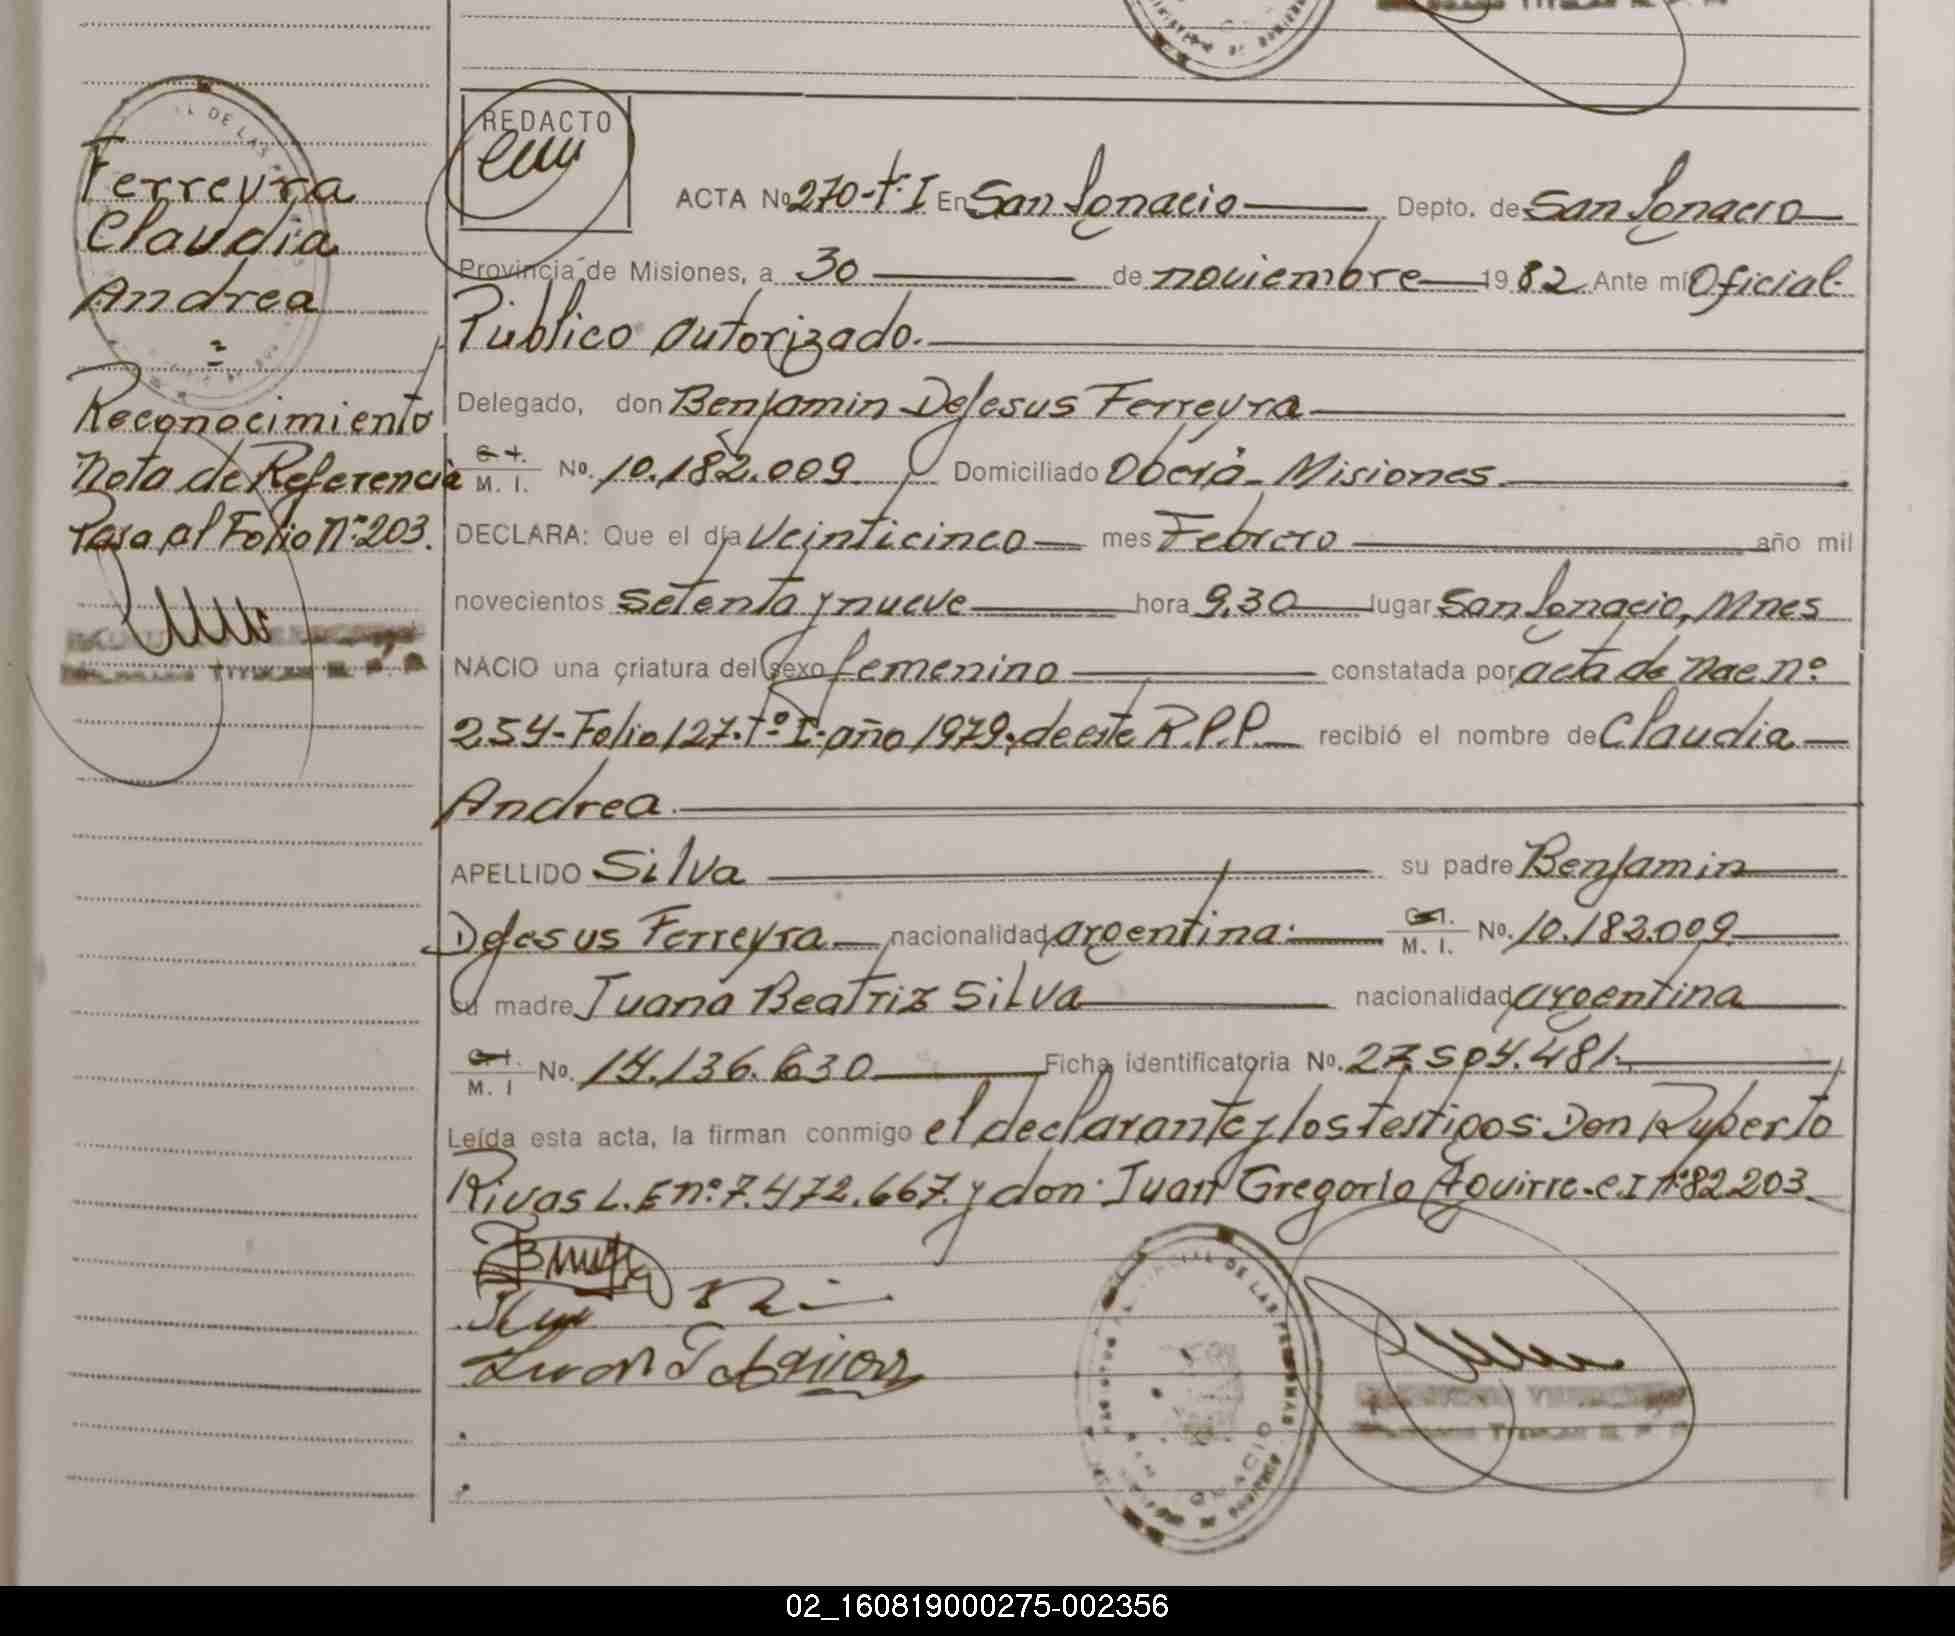 Ferreyra
Claudia
Andrea
=
Reconocimiento
Nota de Referencia
Pasa al Folio Nº 203.
REDACTO
ACTA No 270-Tº I En San Ignacio Depto. de San Ignacio
Provincia de Misiones, a 30 de noviembre 1982. Ante mí Oficial
Público autorizado.
Delegado, don Benjamin DeJesus Ferreyra
C. I. M. I. No. 10.182.009 Domiciliado Oberá - Misiones
DECLARA: Que el día Veinticinco mes Febrero año mil
novecientos setenta y nueve hora 9,30 lugar San Ignacio, Mnes
NACIO una criatura del sexo femenino constatada por acta de Nac nº
254-Folio 127-Tº I-año 1979, de este R.P.P. recibió el nombre de Claudia
Andrea.
APELLIDO Silva su padre Benjamin
DeJesus Ferreyra nacionalidad argentina. C. I. M. I. No. 10.182.009
su madre Juana Beatriz Silva nacionalidad argentina
C. I. M. I No. 14.136.630 Ficha identificatoria No. 27.504.481.
Leída esta acta, la firman conmigo el declarante y los testigos: Don Ruperto
Rivas L.E nº 7.472.667. y don Juan Gregorio Aguirre. C.I Nº 82.203
DE LAS PERSONAS
TITULAR R. P. P.
02_160819000275-002356